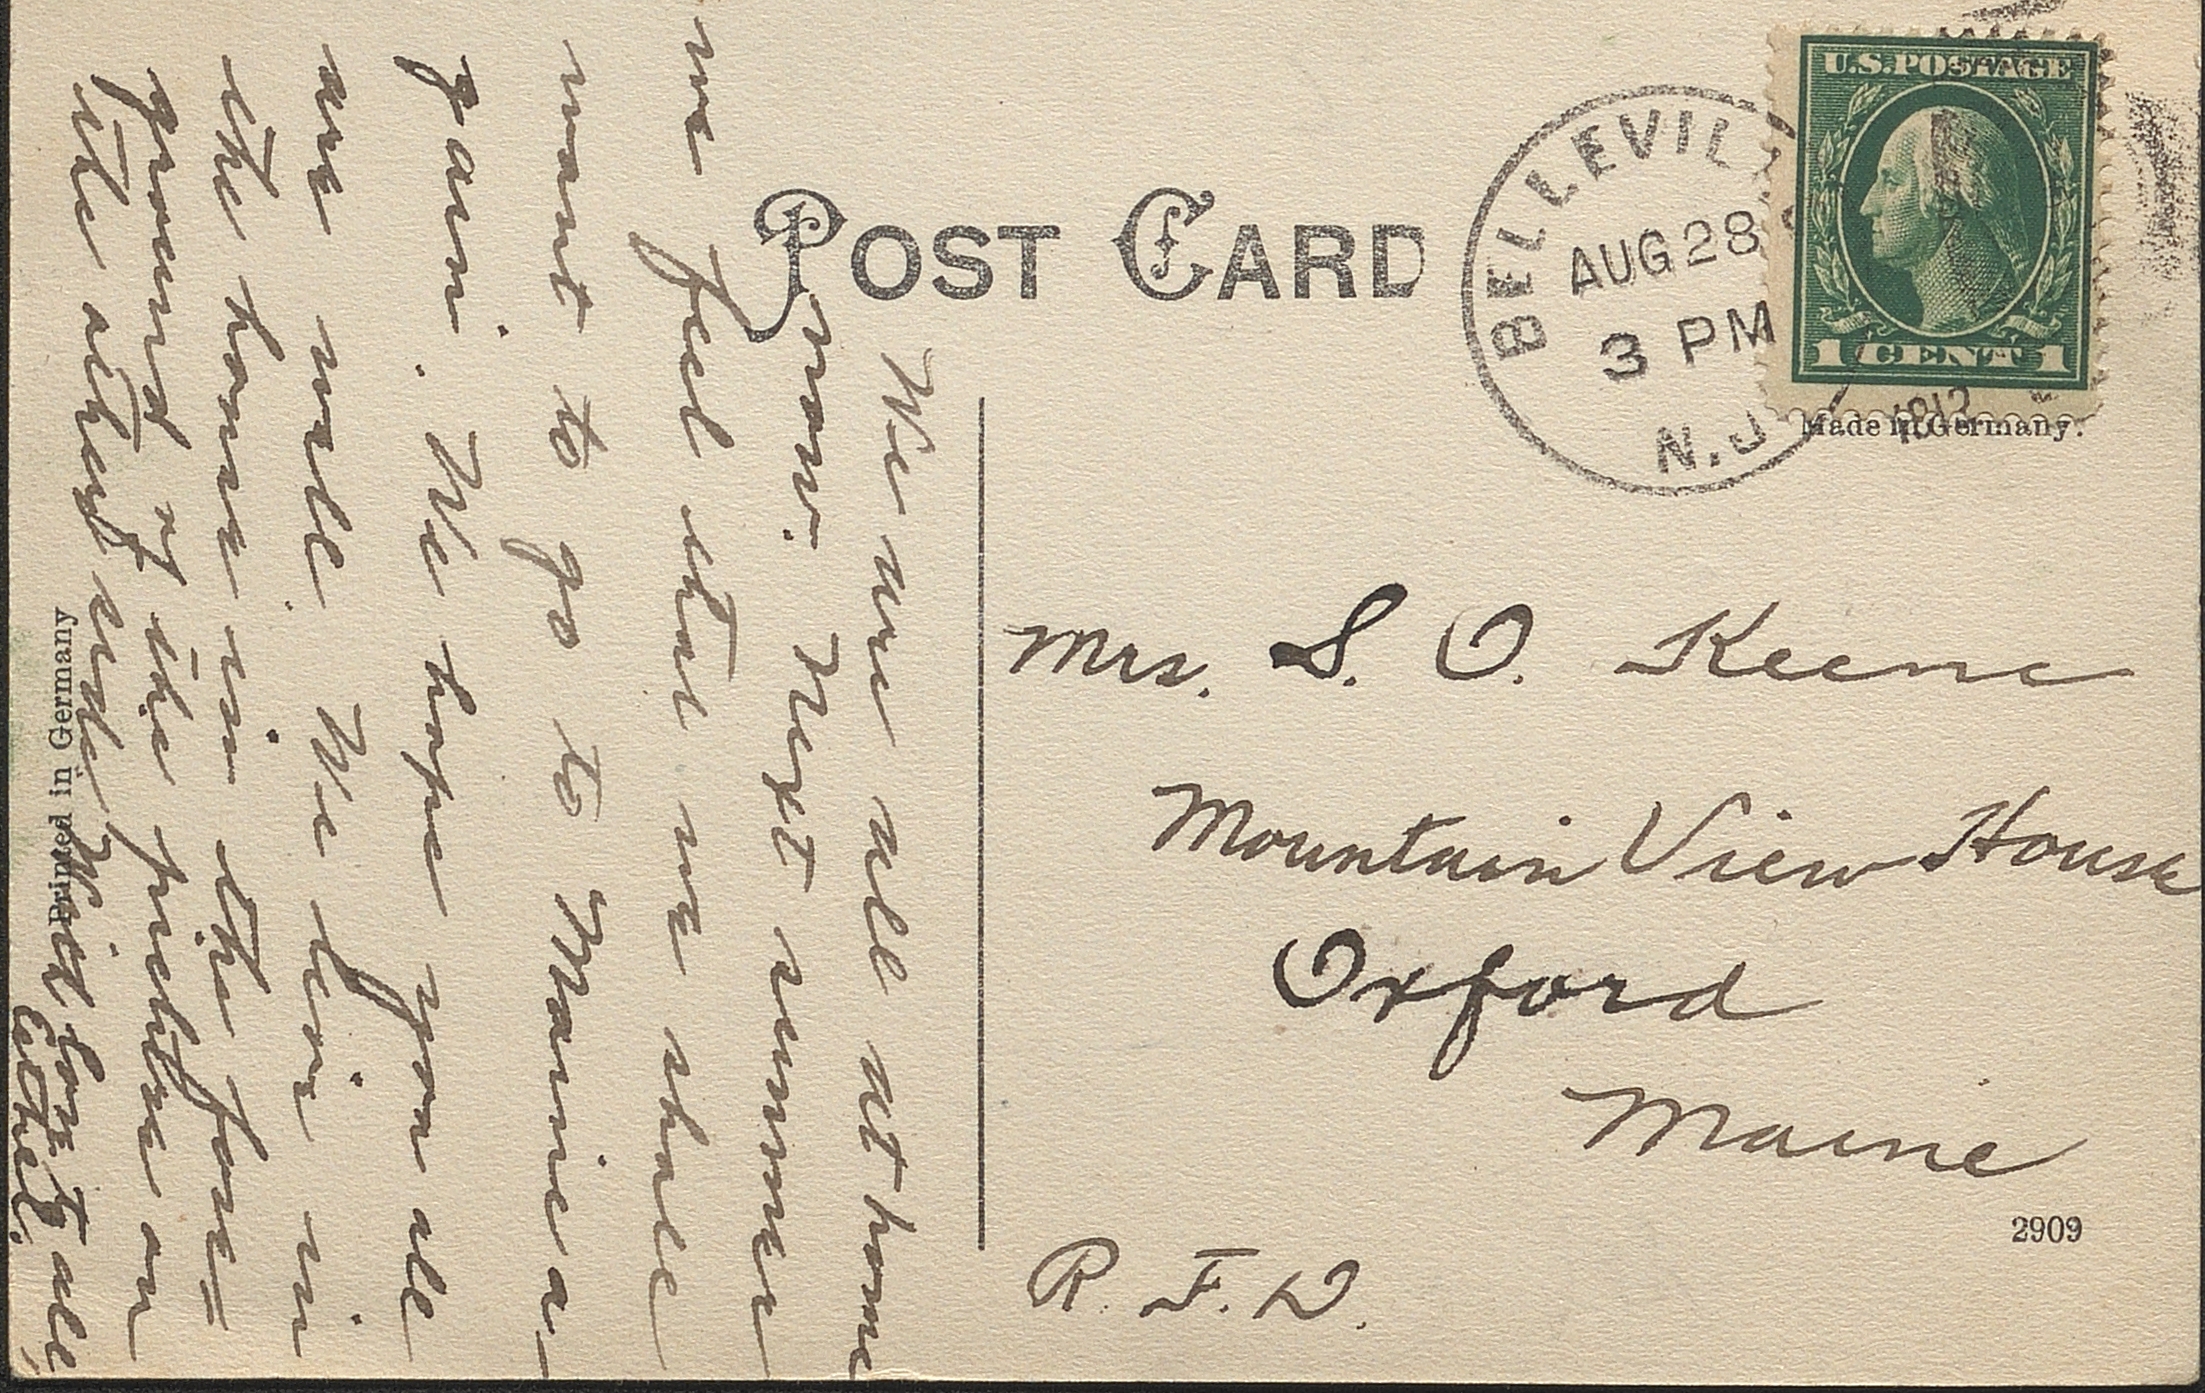 POST CARD
BELLEVIL
AUG 28
3 PM
N.J.
1912
U.S. POSTAGE
1 CENT 1
Made in Germany.
We are all at home
now. Next summer
we feel that we shall
want to go to Maine a-
gain. We hope you all
are well. We live in
the house in the fore=
ground of the picture on
the other side. With love to all,
Ethel.
Printed in Germany
Mrs. S. O. Keene
Mountain View House
Oxford
Maine
R. F. D.
2909